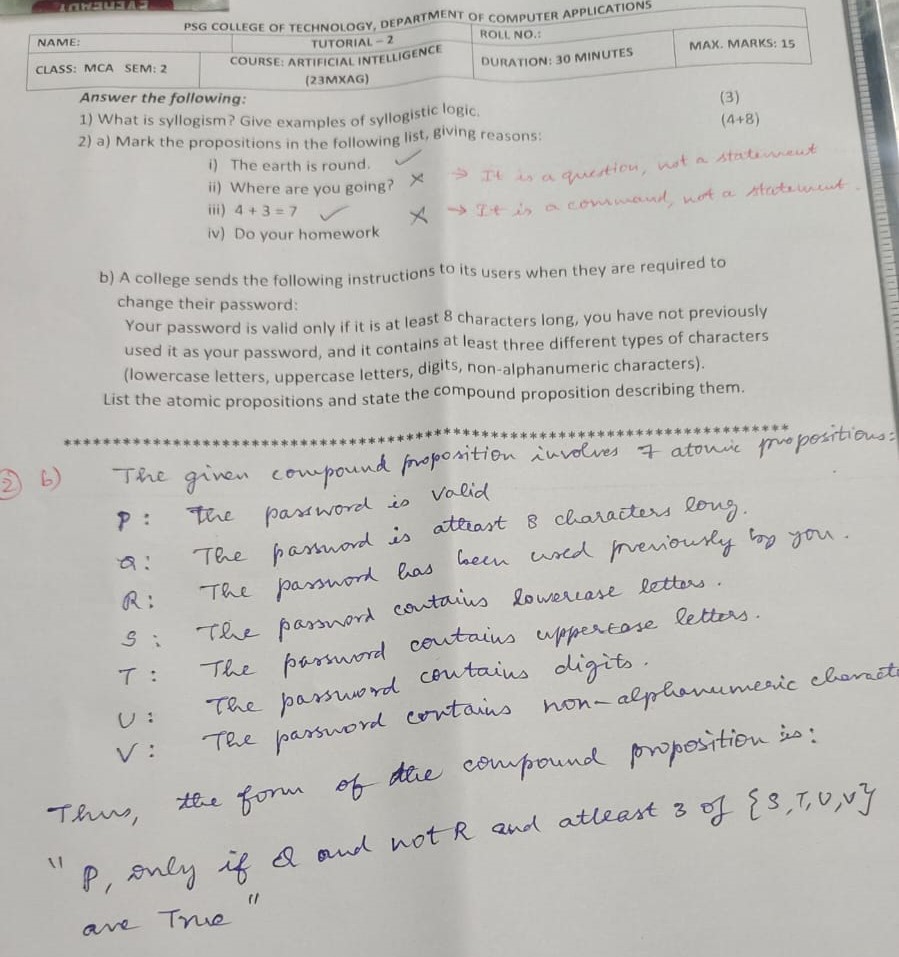 PSG COLLEGE OF TECHNOLOGY, DEPARTMENT OF COMPUTER APPLICATIONS
NAME: TUTORIAL – 2 ROLL NO.:
CLASS: MCA SEM: 2 COURSE: ARTIFICIAL INTELLIGENCE (23MXAG) DURATION: 30 MINUTES MAX. MARKS: 15
Answer the following:
1) What is syllogism? Give examples of syllogistic logic. (3)
2) a) Mark the propositions in the following list, giving reasons: (4+8)
i) The earth is round. ✓
ii) Where are you going? ✗ → It is a question, not a statement
iii) 4 + 3 = 7 ✓
iv) Do your homework ✗ → It is a command, not a statement.
b) A college sends the following instructions to its users when they are required to
change their password:
Your password is valid only if it is at least 8 characters long, you have not previously
used it as your password, and it contains at least three different types of characters
(lowercase letters, uppercase letters, digits, non-alphanumeric characters).
List the atomic propositions and state the compound proposition describing them.
2 b) The given compound proposition involves 7 atomic propositions:
P: The password is valid
Q: The password is atleast 8 characters long.
R: The password has been used previously by you.
S: The password contains lowercase letters.
T: The password contains uppercase letters.
U: The password contains digits.
V: The password contains non-alphanumeric
Thus, the form of the compound proposition is:
"P, only if Q and not R and atleast 3 of {S,T,U,V}
are True"